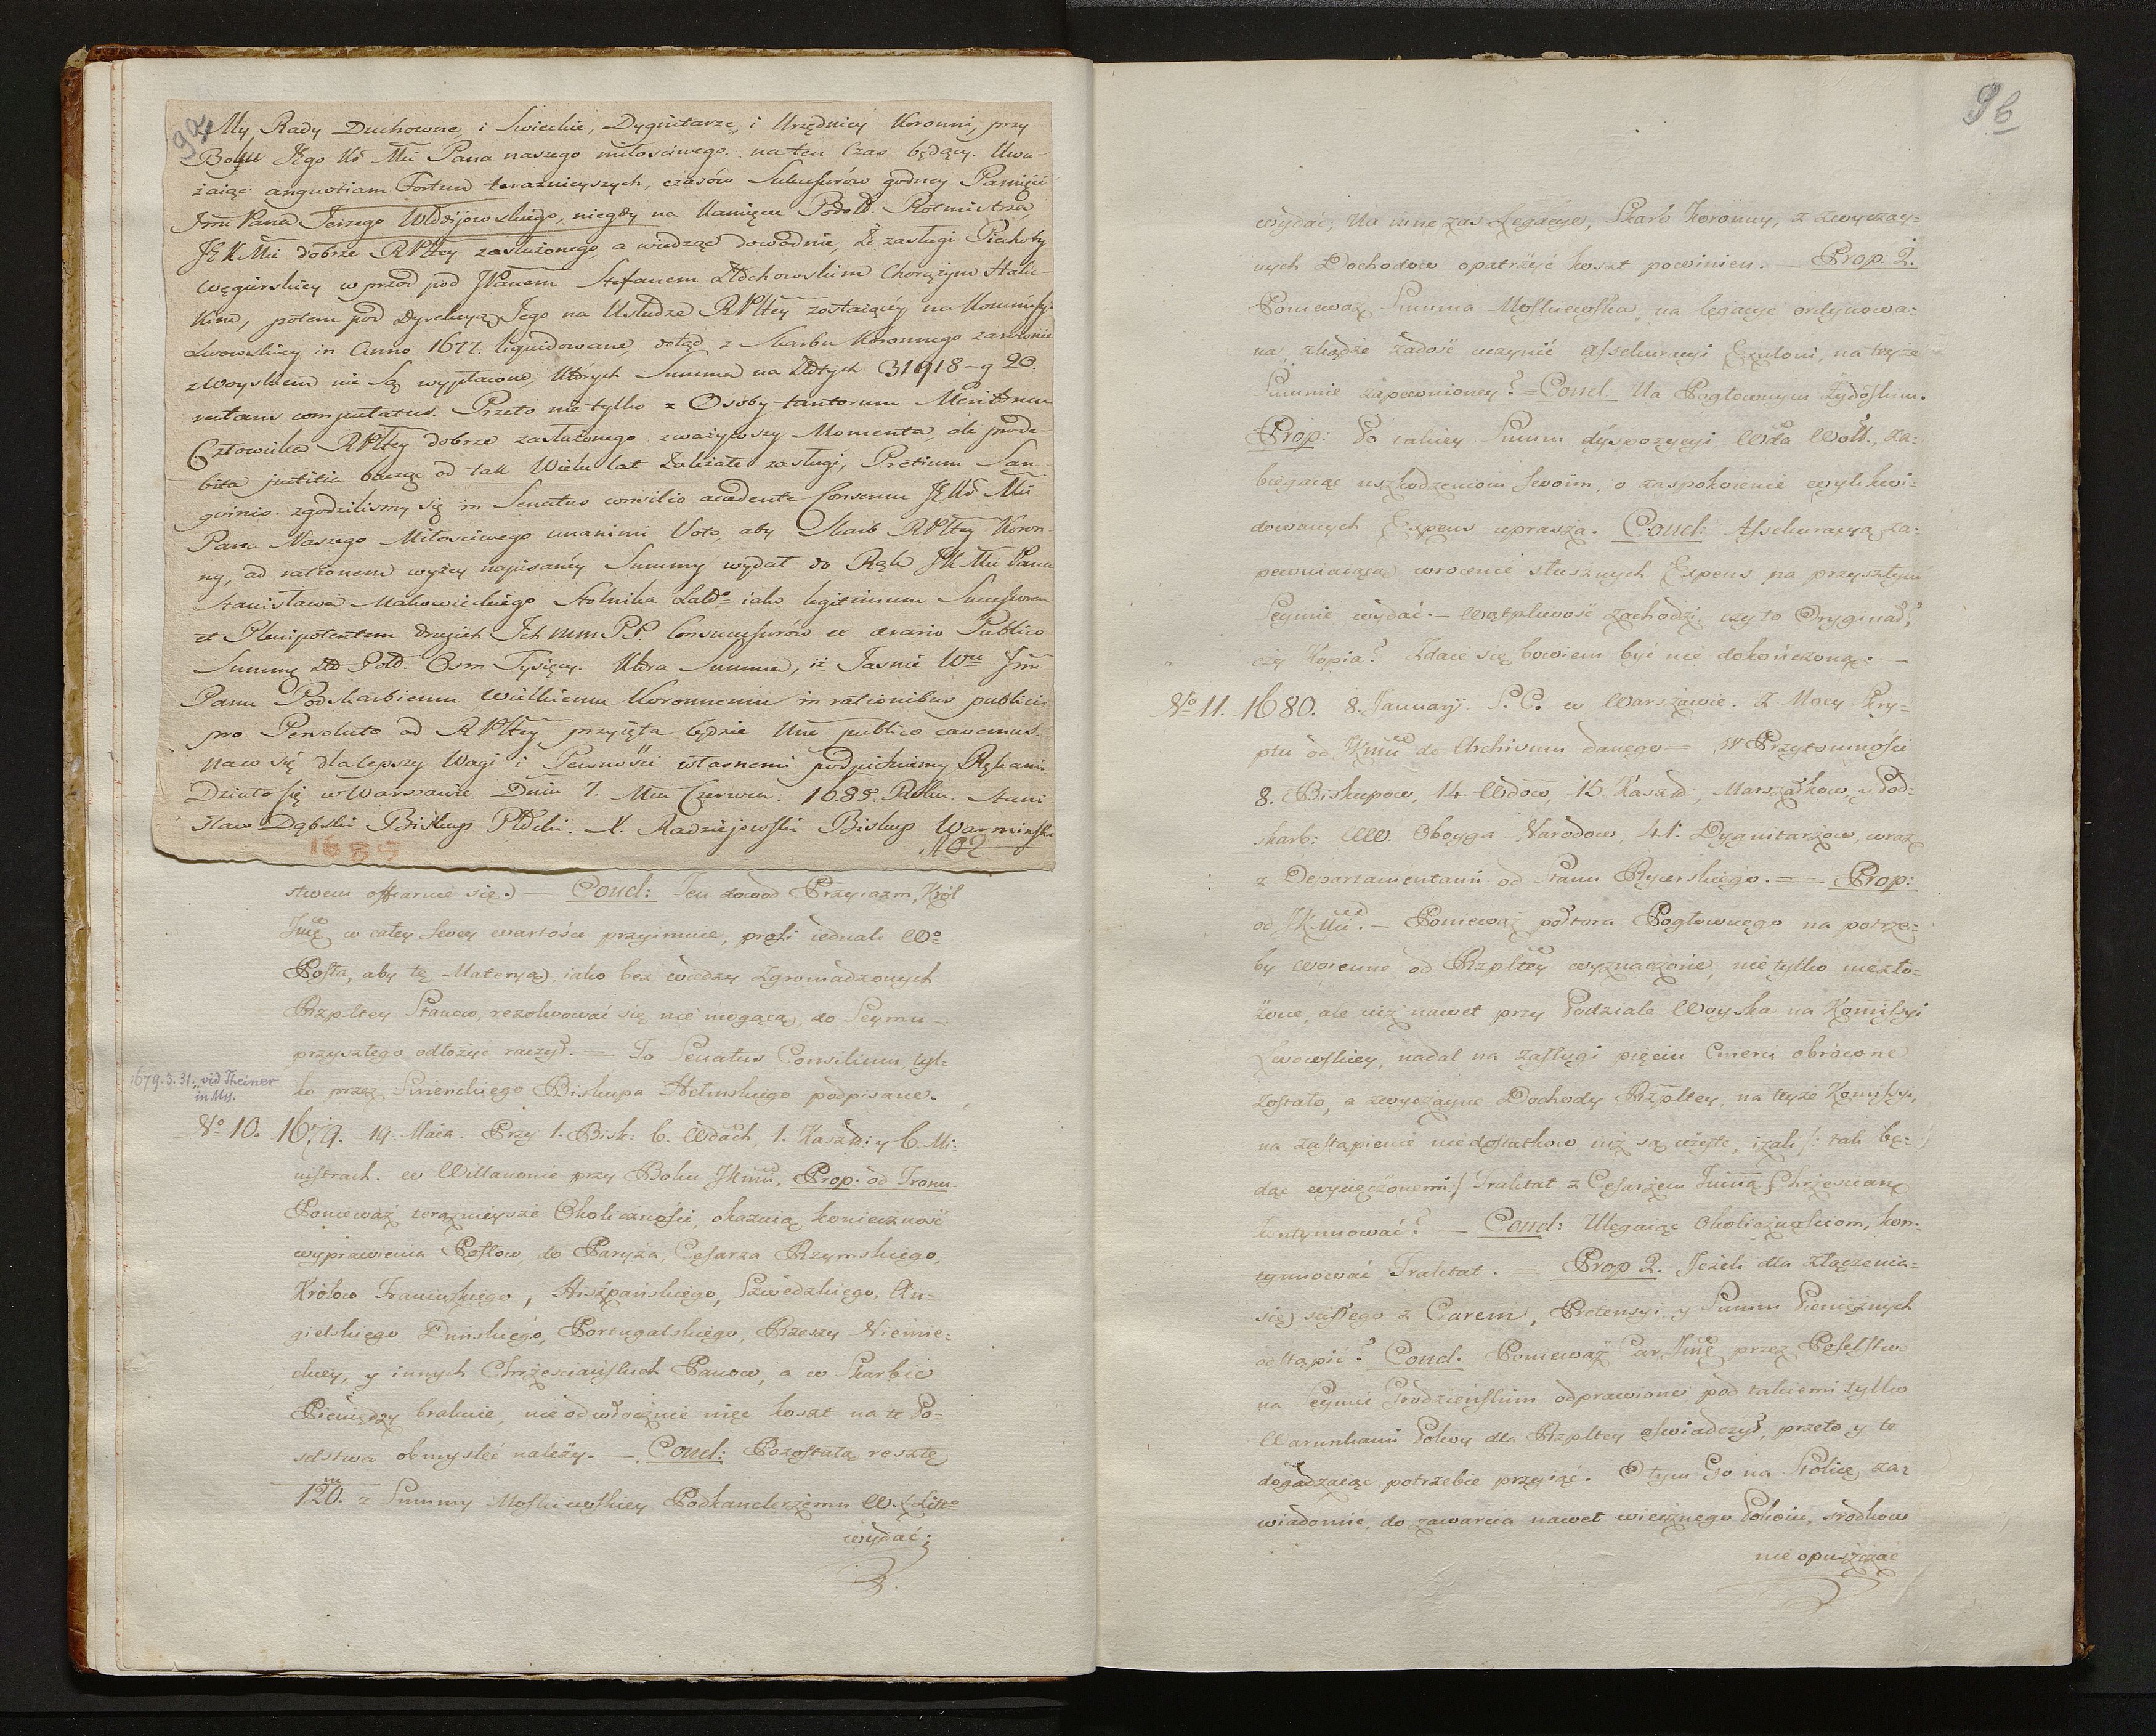 94
My Rady Duchowne, i Swieckie, Dygnitarze, i Urzędnicy Koronni, przy
Boku Jego Kr Mci Pana naszego miłosciwego na ten Czas będący. Uwa-
żaiąc angustiam Fortun teraznieyszych, czasów Sukcessorów godney Pamięci
Jmć Pana Jerzego Wołodyjowskiego, niegdy na Kamięcu Podol. Rotmistrza
JK Mci dobrze RPltey zasłużonego, a wiedząc dowodnie, że zasługi Piechoty
węgierskiey w przod pod JPanem Stefanem Chorążym Halic-
kim, potem pod Dyrekcyą Jego na Usłudze RPltey zostaiącéy na Kommissyi
Lwowskiey in Anno 1677. liquidowane, dotąd z Skarbu Koronnego zarównie
z Woyskiem nie są wypłacone, których Summa na Złotych 31918 - g 20.
computatur. Przeto nie tylko z Osoby tantorum Meritorum
Człowieka RPltey dobrze zasłużonego zważywszy Momenta, ale
bita justitia bacząc od tak Wielu lat zależałe zasługi, Pretium San-
gvinis. zgodzilismy się in Senatus consilio accedente Consensu JKr Mci
Pana Naszego Miłosciwego unanimi Voto, aby Skarb RPltey Koron-
ny, ad rationem wyżey napisanéy Summy wydał do Rąk JK Mci Pana
Stanisława Makowieckiego Stolnika Lat. iako legitimum Successorem
et Plenipotentem drugich Ich mm PP. Consuccessorów ex aerario Publico
Summę Zł Pol. Osm Tysięcy. Która Summa, iż Jasnie Wu Jmć
Panu Podskarbiemu Wielkiemu Koronnemu in rationibus publicis
pro Persoluto od RPltey przyięta będzie publico cavemus.
Na co się dla lepszy Wagi i Pewności własnemi podpisuiemy Rękami
Działo się w Warszawie. Dnia 7. Mca Czerwca. 1685. Roku. Stani-
sław Dąbski Biskup Płocki. X. Radziejowski Biskup Warminski
1685
stwem offiaruie się.) — Concl: Ten dowod Przyiazni, Krol
Jmć w całey swey wartości przyimuie, prosi iednak Wo
Posła, aby tę Materyą, iako bez wiedzy zgromadzonych
Rzpltey Stanow, rezolwować się nie mogącą, do Seymu
przyszłego odłożyć raczył. — To Senatus Consilium, tyl-
ko przez Swienckiego Biskupa Hełmskiego podpisane.
1679. 3. 31. vid Theiner
in Ms.
No 10. 1679. 19. Maia. Przy 1. Bisk: 6. Wdach, 1. Kaszt: y 6. Mi-
nistrach. w Willanowie przy Boku JKmci, Prop: od Tronu.
Ponieważ teraznieysze Okoliczności, okazuią konieczność
wyprawienia Posłow, do Paryża, Cesarza Rzymskiego,
Królow Francuzkiego, Hiszpańskiego, Szwedzkiego, An-
gielskiego Duńskiego, Portugalskiego, Rzeszy Niemie-
ckiey, y innych Chrześciańskich Panow, a w Skarbie
Pieniędzy brakuie, nie odwłocznie więc koszt na te Po-
selstwa obmysleć należy. — Concl: Pozostałą resztę
120. m z Summy Moskiewskiey Podkanclerzemu W. X. Litt.
wydać;
96
wydać; Na inne zas Legacye, Skarb Koronny, z zwyczay-
nych Dochodow opatrzyć koszt powinien. — Prop: 2.
Ponieważ Summa Moskiewska, na legacye ordynowa-
na, zkądże zadość uczynić Assekuracyi Exulom, na teyże
Summie zapewnioney? = Concl. Na Pogłownym Żydoskim.
Prop: Po takiey Summ dyspozycyi Wda Woł., za-
biegaiąc uszkodzeniom swoim, o zaspokoienie wylikwi-
dowanych Expens uprasza. Concl: Assekuracyą za-
pewniaiącą wrocenie słusznych Expens na przyszłym
Seymie wydać. — Wątpliwość zachodzi, czy to Oryginał,
czy Kopia? Zdaie się bowiem być nie dokończoną. —
No 11. 1680. 8. January. S. C. w Warszawie. Z Mocy Skry-
ptu od JKmci do Archivum danego — W Przytomności
8. Biskupow, 14 Wdow, 15 Kaszt:, Marszałkow, y Pod-
skarb: WW. Oboyga Narodow, 41. Dygnitarzow, wraz
z Departamentami od Stanu Rycerskiego. = Prop:
od JKMci. — Ponieważ połtora Pogłownego na potrze-
by woienne od Rzpltey wyznaczone, nie tylko niezło-
żone, ale iuż nawet przy Podziale Woyska na Komissyi
Lwowskiey, nadal na zasługi pięciu Cwierci obrócone
zostało, a zwyczayne Dochody Rzpltey, na teyże Komissyi,
na zastąpienie niedostatkow iuż są użyte, izali /: tak bę-
dąc wycięczonemi :/ Traktat z Cesarzem Jmcią Chrześcian
kontynuować? — Concl: Ulegaiąc Okolicznościom, kon-
tynuować Traktat. = Prop 2. Jeżeli dla złączenia
się scisłego z Carem, Pretensyi, y Summ Pieniężnych
odstąpić? Concl. Ponieważ Car Jmć przez Poselstwo
na Seymie Grodzieńskim odprawione pod takiemi tylko
Warunkami Pokoy dla Rzpltey oświadczył, przeto y te
dogadzaiąc potrzebie przyiąć. O tym Go na Stolicę za-
wiadomić, do zawarcia nawet wiecznego Pokoiu, srodkow
nie opuszczać